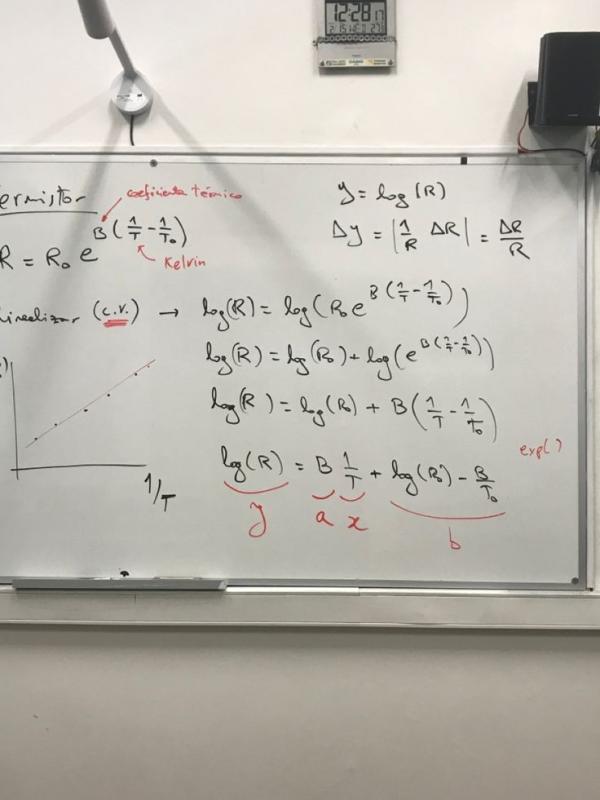 ermistor
coeficiente térmico
R = R₀ e^{B(1/T - 1/T₀)}
Kelvin
y = log(R)
Δy = |1/R ΔR| = ΔR/R
linealizar (c.v.) → log(R) = log(R₀ e^{B(1/T - 1/T₀)})
log(R) = log(R₀) + log(e^{B(1/T - 1/T₀)})
log(R) = log(R₀) + B(1/T - 1/T₀)
exp()
log(R) = B 1/T + log(R₀) - B/T₀
y a x b
)
1/T
12:28
CASIO